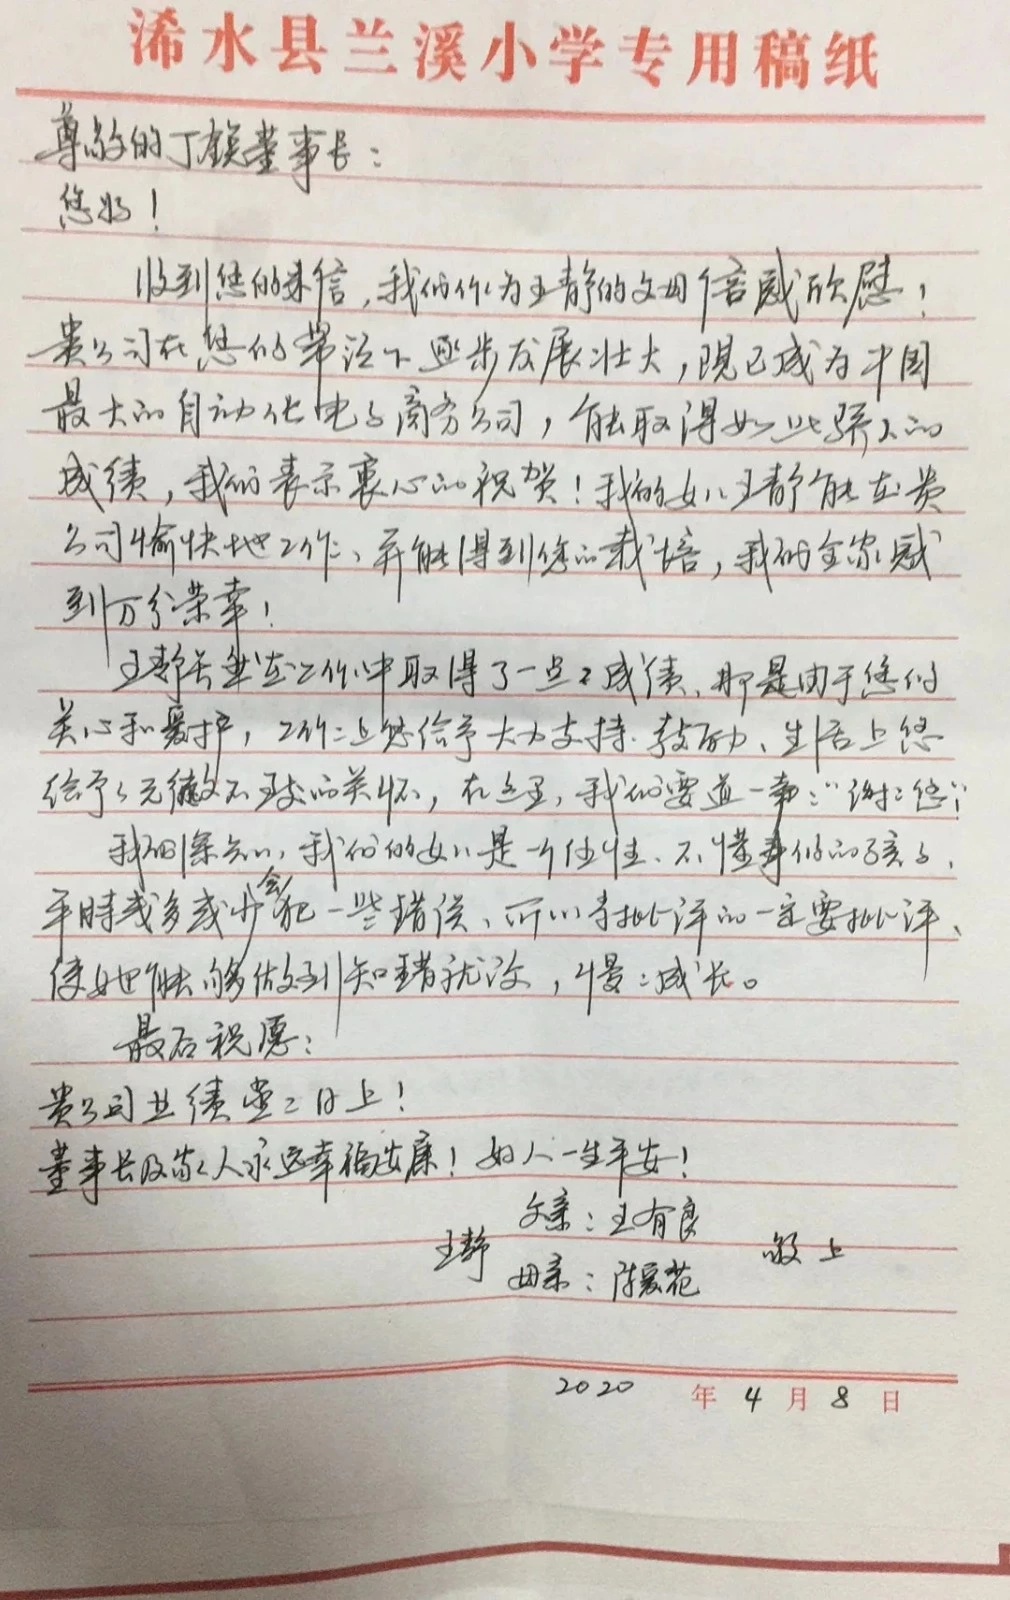 浠水县兰溪小学专用稿纸
尊敬的丁锳董事长：
您好！
收到您的来信，我们作为王静的父母倍感欣慰！
贵公司在您的带领下逐步发展壮大，现已成为中国
最大的自动化电子商务公司，能取得如此骄人的
成绩，我们表示衷心的祝贺！我的女儿王静能在贵
公司愉快地工作、并能得到您的栽培，我们全家感
到万分荣幸！
王静虽然在工作中取得了一点点成绩、那是由于您的
关心和爱护，工作上您给予大力支持、鼓励、生活上您
给予了无微不至的关怀，在这里，我们要道一声：“谢谢您”！
我们深知，我们的女儿是一个任性、不懂事的孩子、
平时或多或少会犯一些错误、所以寻批评的一定要批评、
使她能够做到知错就改，慢慢成长。
最后祝愿：
贵公司业绩蒸蒸日上！
董事长及家人永远幸福安康！好人一生平安！
王静
父亲：王有良
母亲：陈爱花
敬上
2020年4月8日